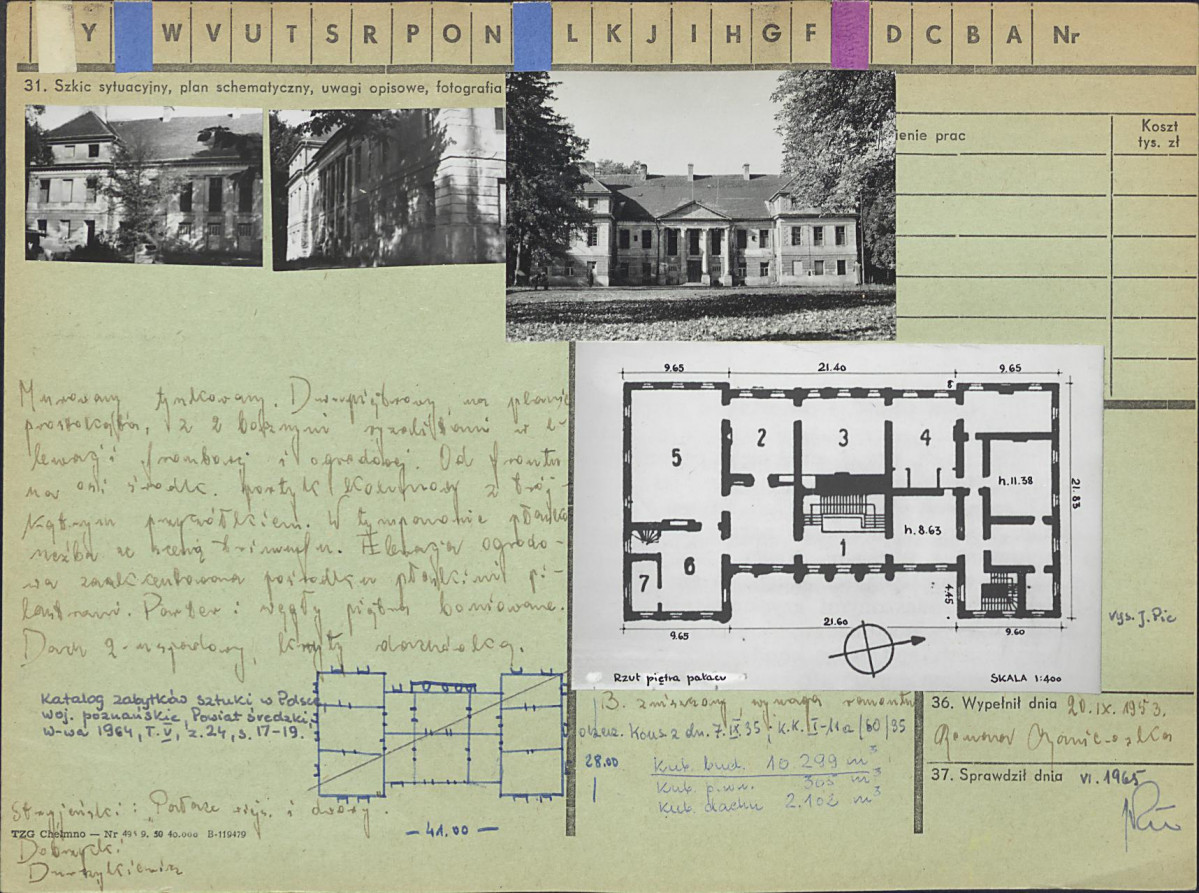 Y W V U T S R P O N L K J I H G F D C B A Nr
31. Szkic sytuacyjny, plan schematyczny, uwagi opisowe, fotografia
ienie prac
Koszt
tys. zł
Murowany tynkowany. Dwupiętrowy, na planie
prostokąta, z 2 bocznymi ryzalitami w e-
lewacji frontowej i ogrodowej. Od frontu
na osi środk. portyk kolumnowy z trój-
kątnym przyczółkiem. W tympanonie płaska
rzeźba ze sceną triumfu. Elewacja ogrodo-
wa zaakcentowana pośrodku płaskimi pi-
lastrami. Parter i węgły piętra boniowane.
Dach 2-uspadowy, kryty dachówką.
Katalog zabytków sztuki w Polsce
woj. poznańskie, Powiat średzki,
w-wa 1964, T. V, z. 24, s. 17-19.
Stryjeński: Pałace wiejs. i dwory.
TZG Chełmno — Nr 9. 50 40.000 B-119479
Dobrzycki
— 41.00 —
28.00
9.65 21.40 9.65
8
5 2 3 4
h. 11.38
21.83
h. 8.63
1
6
7
4.45
9.65 21.60 9.60
Rzut piętra pałacu SKALA 1:400
wys. J. Pic
B. zniszczony, wymaga remontu
orzecz. Kons z dn. 7. IX 35 K.K. II-11a/60/35
Kub. bud. 10.299 m³
Kub. piwn. 305 m³
Kub. dachu 2.102 m³
36. Wypełnił dnia 20. IX. 1953.
37. Sprawdził dnia VI. 1965